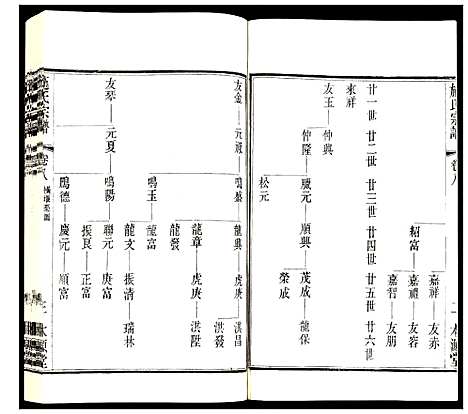 施氏宗譜
卷八
二
本源堂
嘉祥——友赤
紹富——嘉禮——友容
嘉智——友朋
廿一世 廿二世 廿三世 廿四世 廿五世 廿六世
來祥
友玉——仲興
仲隆——處元——順興——茂成——龍保
榮成
松元
友金——元殿——鳴盛——龍興——虎庚——洪昌
洪發
龍章——虎庚——洪陞
龍發
鳴玉——龍富
龍文——振清——瑞林
友琴——元夏——鳴陽——聯元——庚富
振良——正富
鳳德——慶元——順富
施氏宗譜
卷八
三
本源堂